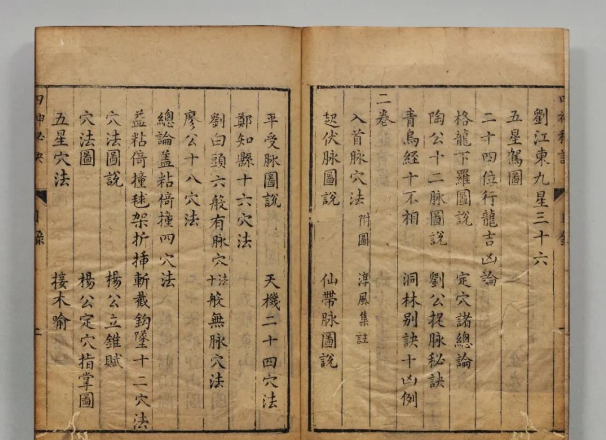 劉江東九星三十六
五星駕圖
二十四位行龍吉凶論
格龍下羅圖說 定穴諸總論
陶公十二脈圖說 劉公捉脈秘訣
青烏經十不相 洞林別訣十凶例
二卷
入首脈穴法 附圖 淳風集註
起伏脈圖說 仙帶脈圖說
平受脈圖說 天機二十四穴法
鄭知縣十六穴法
劉白頭六般有脈穴法 十般無脈穴法
廖公十八穴法
總論蓋粘倚撞四穴法
蓋粘倚撞毬架折揷斬截鈎墜十二穴法
穴法圖說 楊公立錐賦
穴法圖 楊公定穴指掌圖
五星穴法 接木喻
目錄